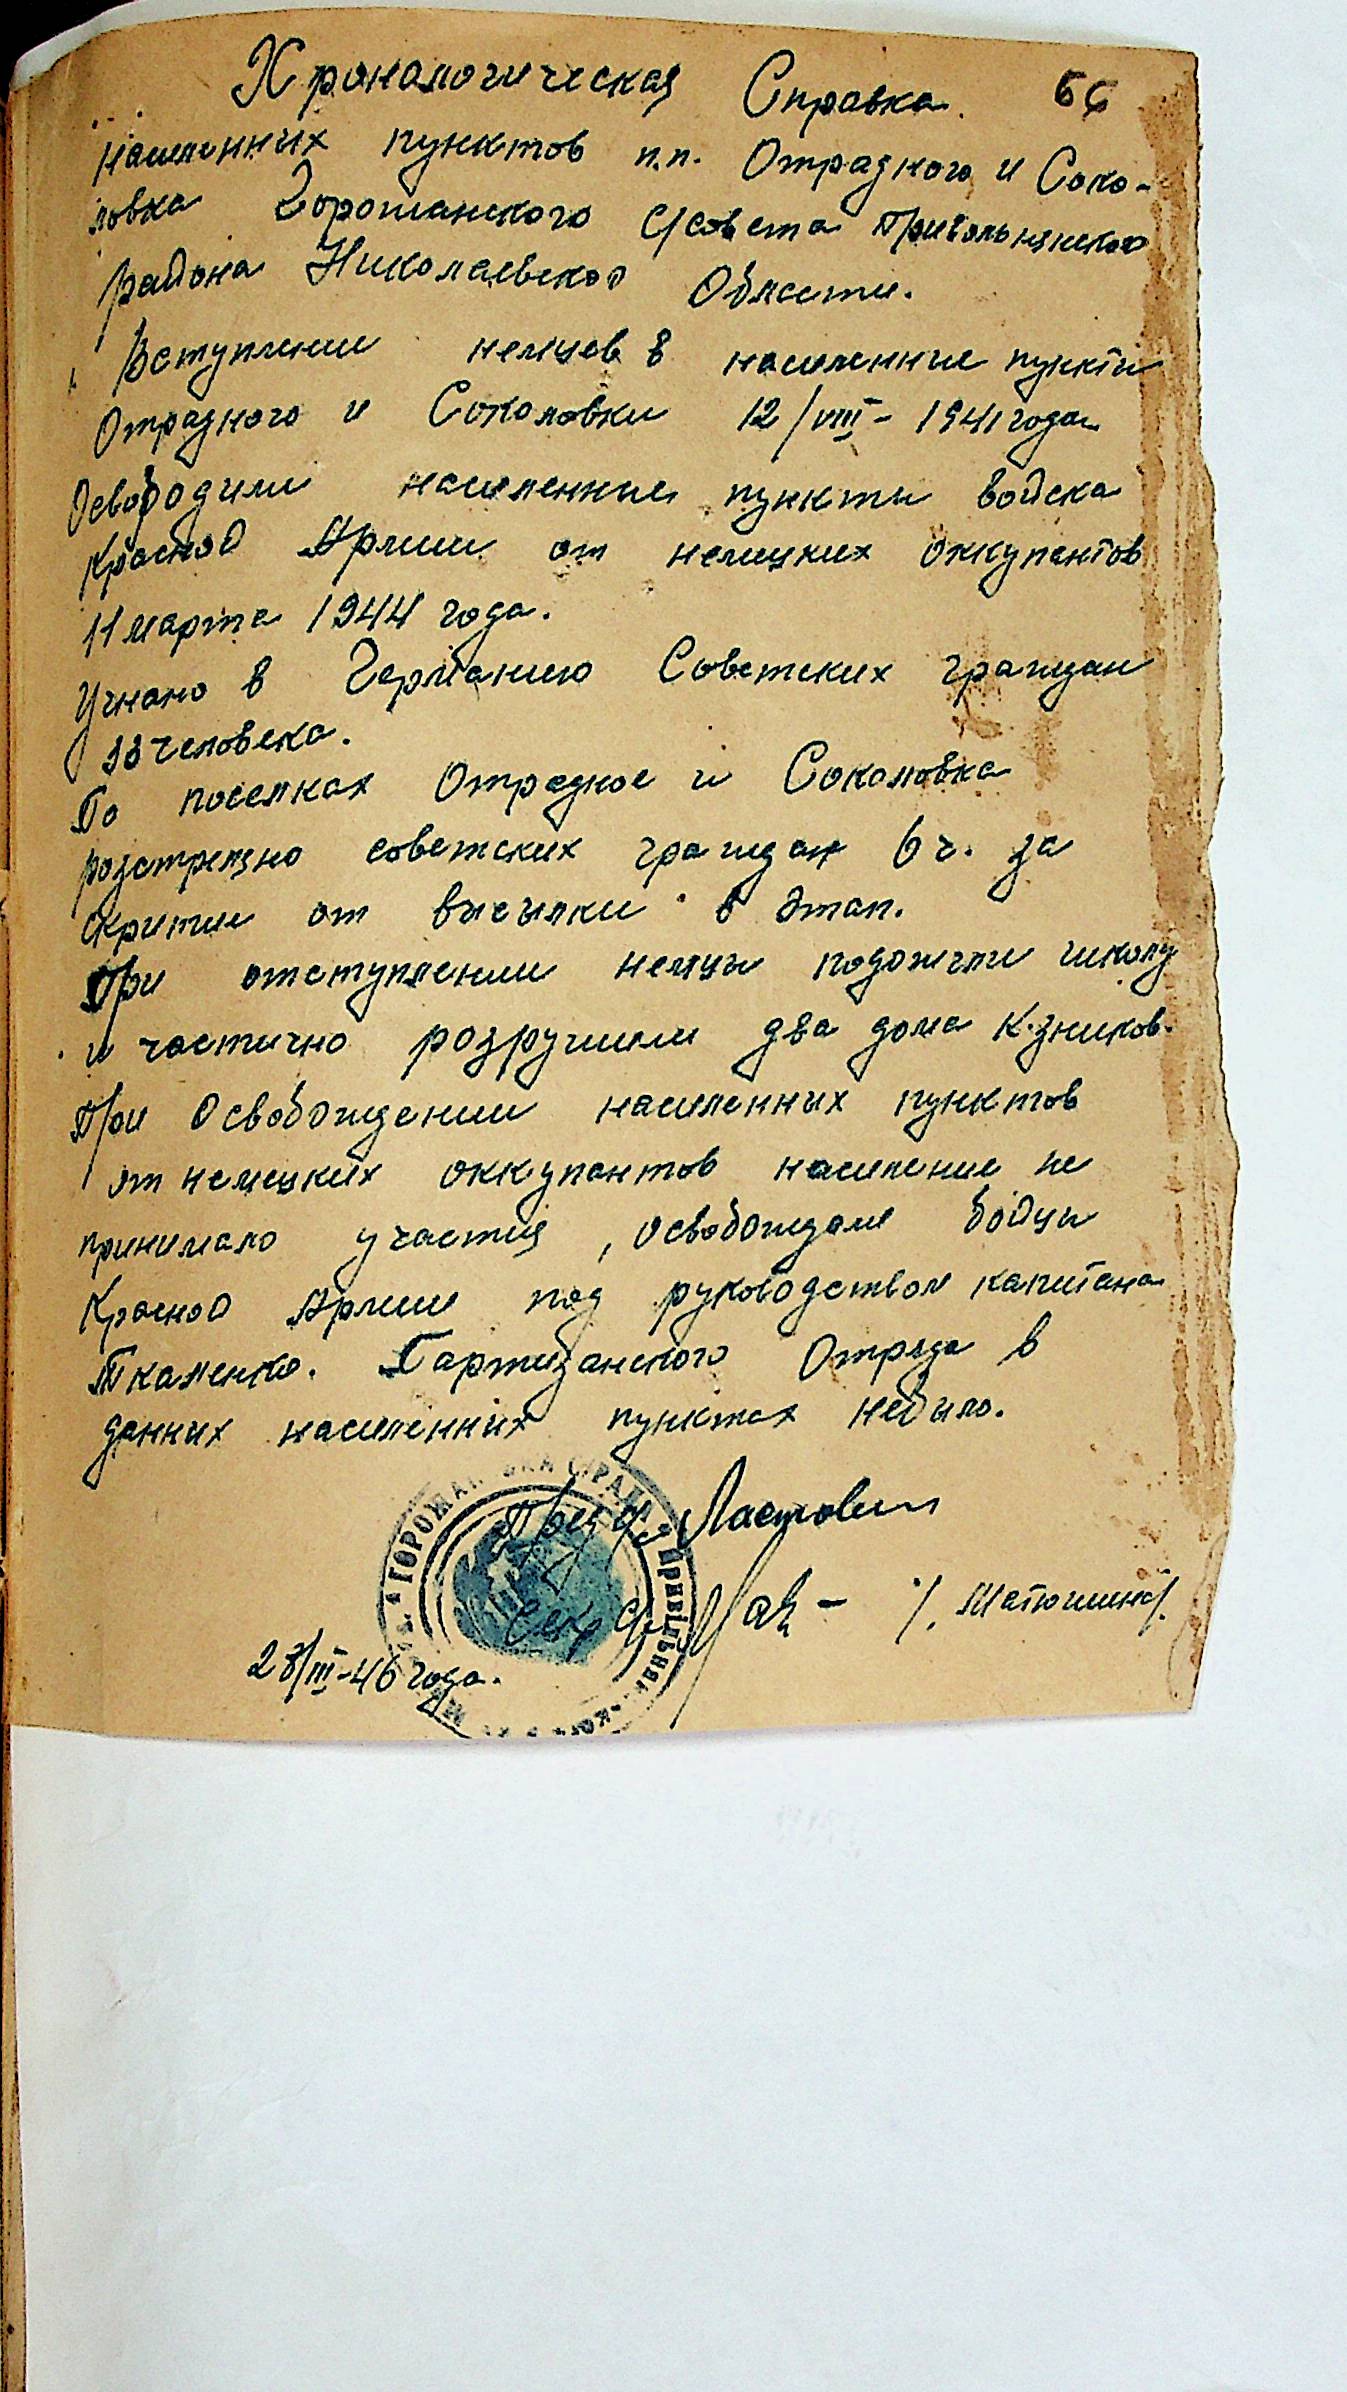 Хроналогическая Справка. 66
Населенных пунктов п.п. Отрадного и Соко-
ловка Горожанского с/совета Привольнянского
района Николаевской Области.
Вступление немцев в населенные пункты
Отрадного и Соколовки 12/VIII - 1941 года
Освободили населенные пункты войска
Красной Армии от немецких оккупантов
11 марта 1944 года.
Угнано в Германию Советских граждан
33 человека.
По поселках Отрадное и Соколовка
розстреляно советских граждан 6 ч. за
скритие от высылки в этап.
При отступлении немцы подожгли школу
и частично розрушили два дома к-зников.
При Освобождении населенных пунктов
от немецких оккупантов население не
принимало участия, освобождали бойцы
Красной Армии под руководством капитана
Ткаленко. Партизанского Отряда в
данных населенных пунктах небыло.
Пред с/с Ластовин
Секр с/с /. Матюшина/.
28/III-46 года.
ГОРОЖАН СЬКА С/РАДА Привільнян ського